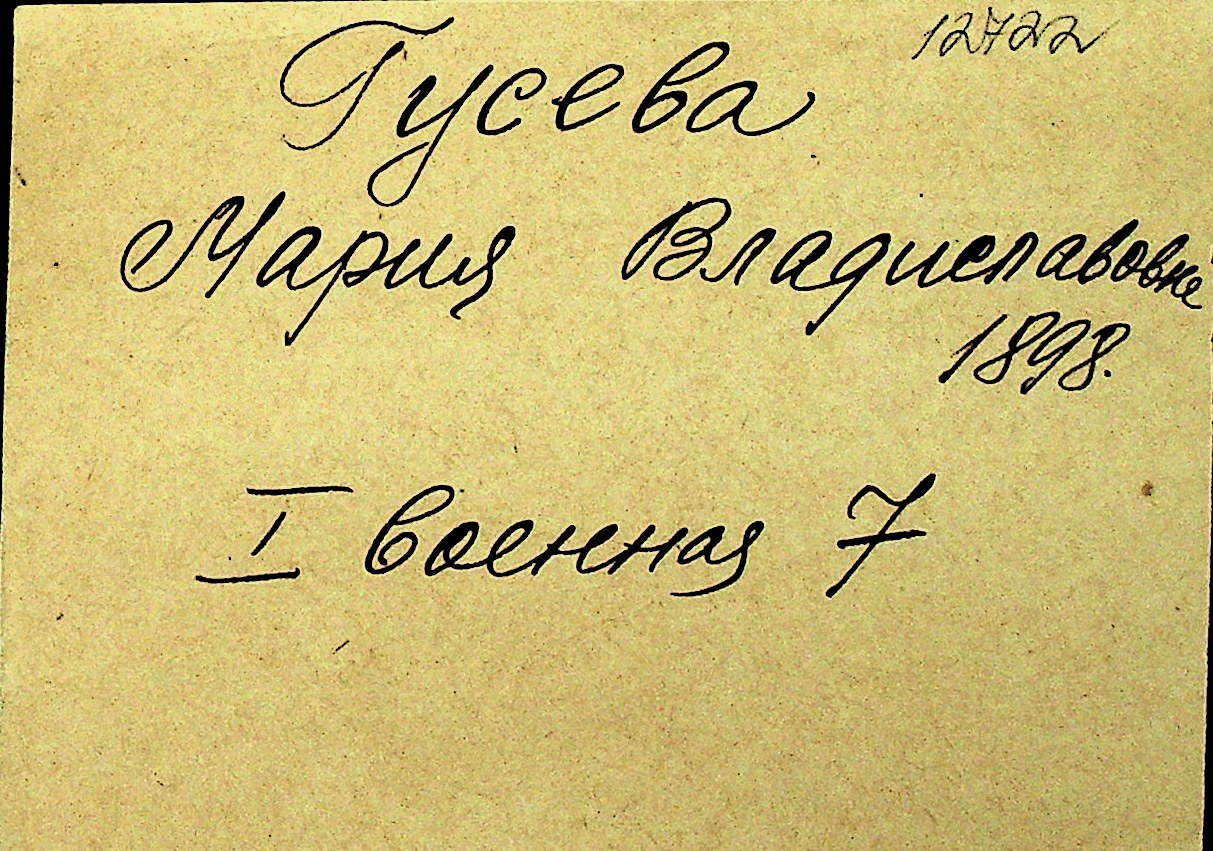 12722
Гусева
Мария Владиславовне
1898.
I военная 7